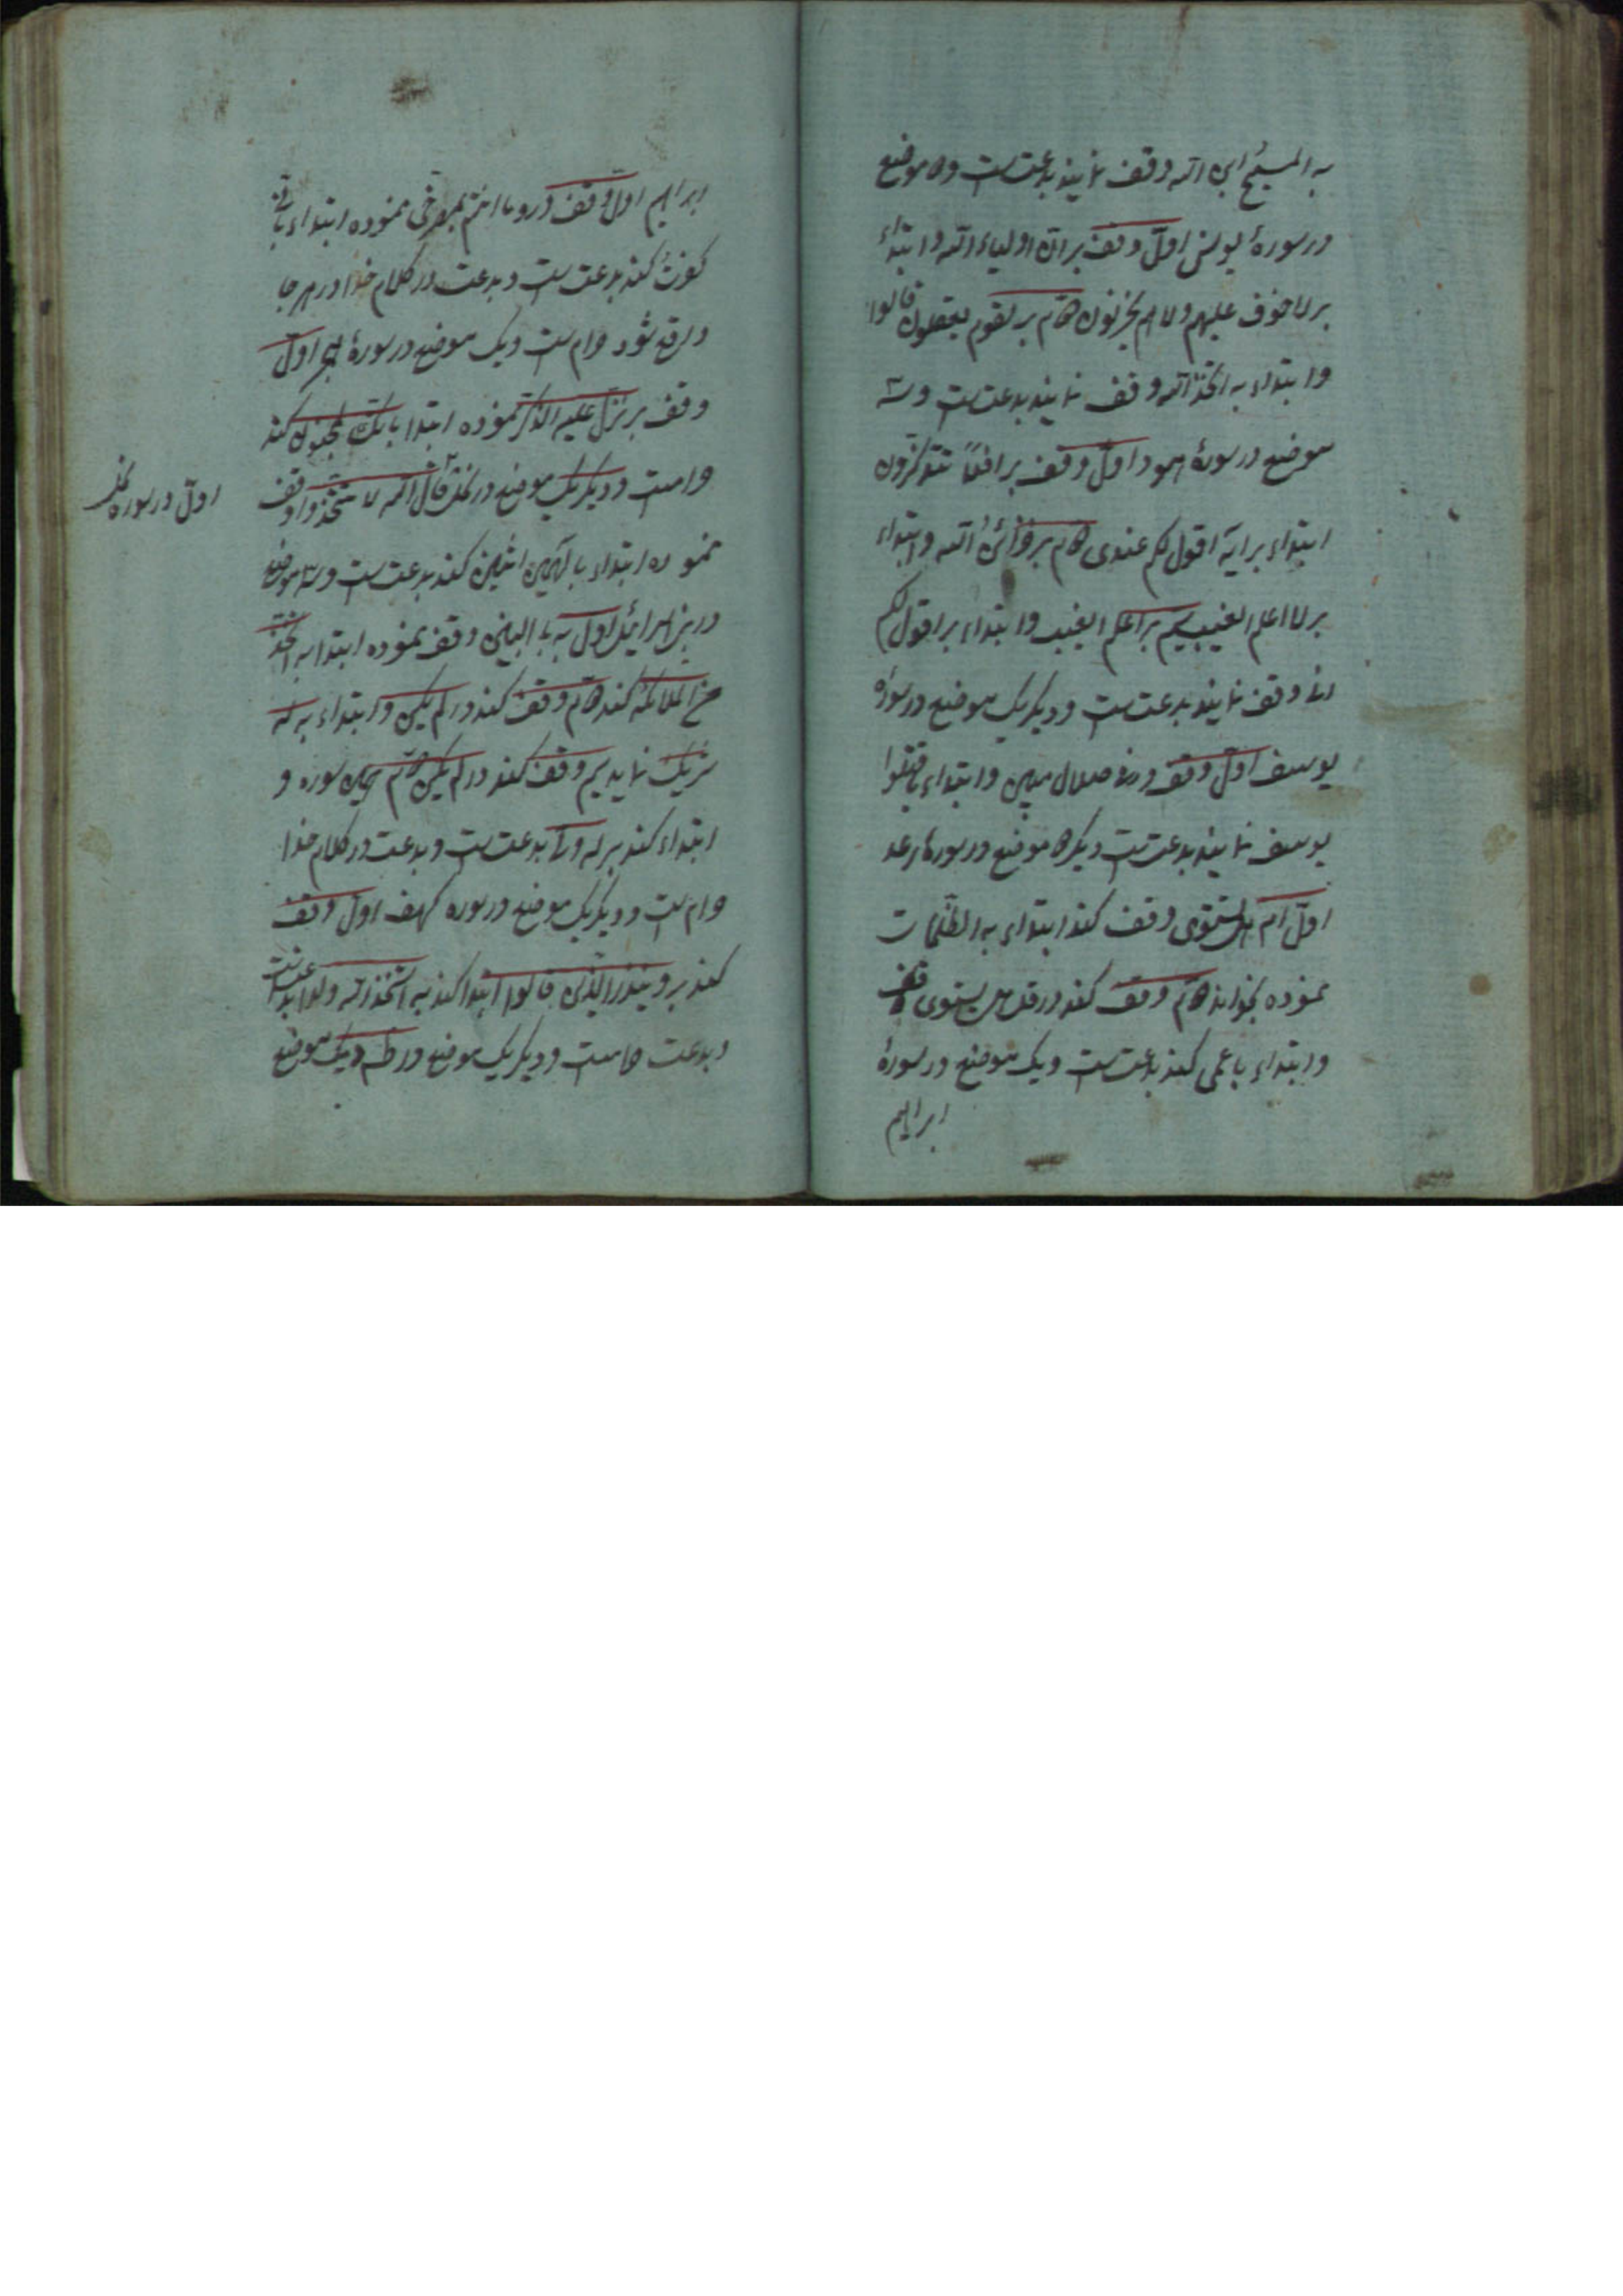 به المسیح ابن الله وقف نمایند بدعتست و دو موضع
در سورهٔ یونس اول وقف بر ان اولیاء الله و ابتداء
بر لا خوف علیهم ولا هم یحزنون دوم بر لقوم یعقلون قالوا
و ابتداء به اتخذ الله وقف نمایند بدعتست و سه
موضع در سورهٔ هود اول وقف بر افلا تتذکرون
ابتداء بر ایه اقول لکم عندی دوم بر خزائن الله و ابتداء
بر لا اعلم الغیب سیم بر اعلم الغیب و ابتداء بر اقول لکم
وقف نمایند بدعتست و دیگر یک موضع در سورهٔ
یوسف اول وقف در ضلال مبین و ابتداء باقتلوا
یوسف نمایند بدعتست دیگر دو موضع در سوره رعد
اول ام هل تستوی وقف کند ابتداء به الظلمات
نموده بخواند دوم وقف کند در قل هل یستوی وقف
و ابتداء باعمی کند بدعتست و یک موضع در سورهٔ
ابراهیم
ابراهیم اول وقف در و ما انتم بمصرخی نموده ابتداء بانی
کفرت کند بدعتست و بدعت در کلام خدا در هر جا
واقع شود حرامست و یک موضع در سورهٔ حجر اول
وقف بر نزل علیه الذکر نموده ابتدا بانک لمجنون کند
حرامست و دیگر یک موضع در نحل قال الله لا تتخذوا وقف
اول در سوره نحل
نموده ابتداء بالهین اثنین کند بدعتست و سه موضع
در بنی اسرائیل اول به بالبنین وقف نموده ابتدا به اتخذ
من الملائکة کند دوم وقف کند در لم یکن و ابتداء به له
شریک نماید سیم وقف کند در لم یکن دوم همین سوره و
ابتداء کند بر له ولی بدعتست و بدعت در کلام خدا
حرامست و دیگر یک موضع در سوره کهف اول وقف
کند بر و ینذر الذین قالوا ابتدا کند به اتخذ الله ولدا بدعتست
و بدعت حرامست و دیگر یک موضع در طه و یک موضع